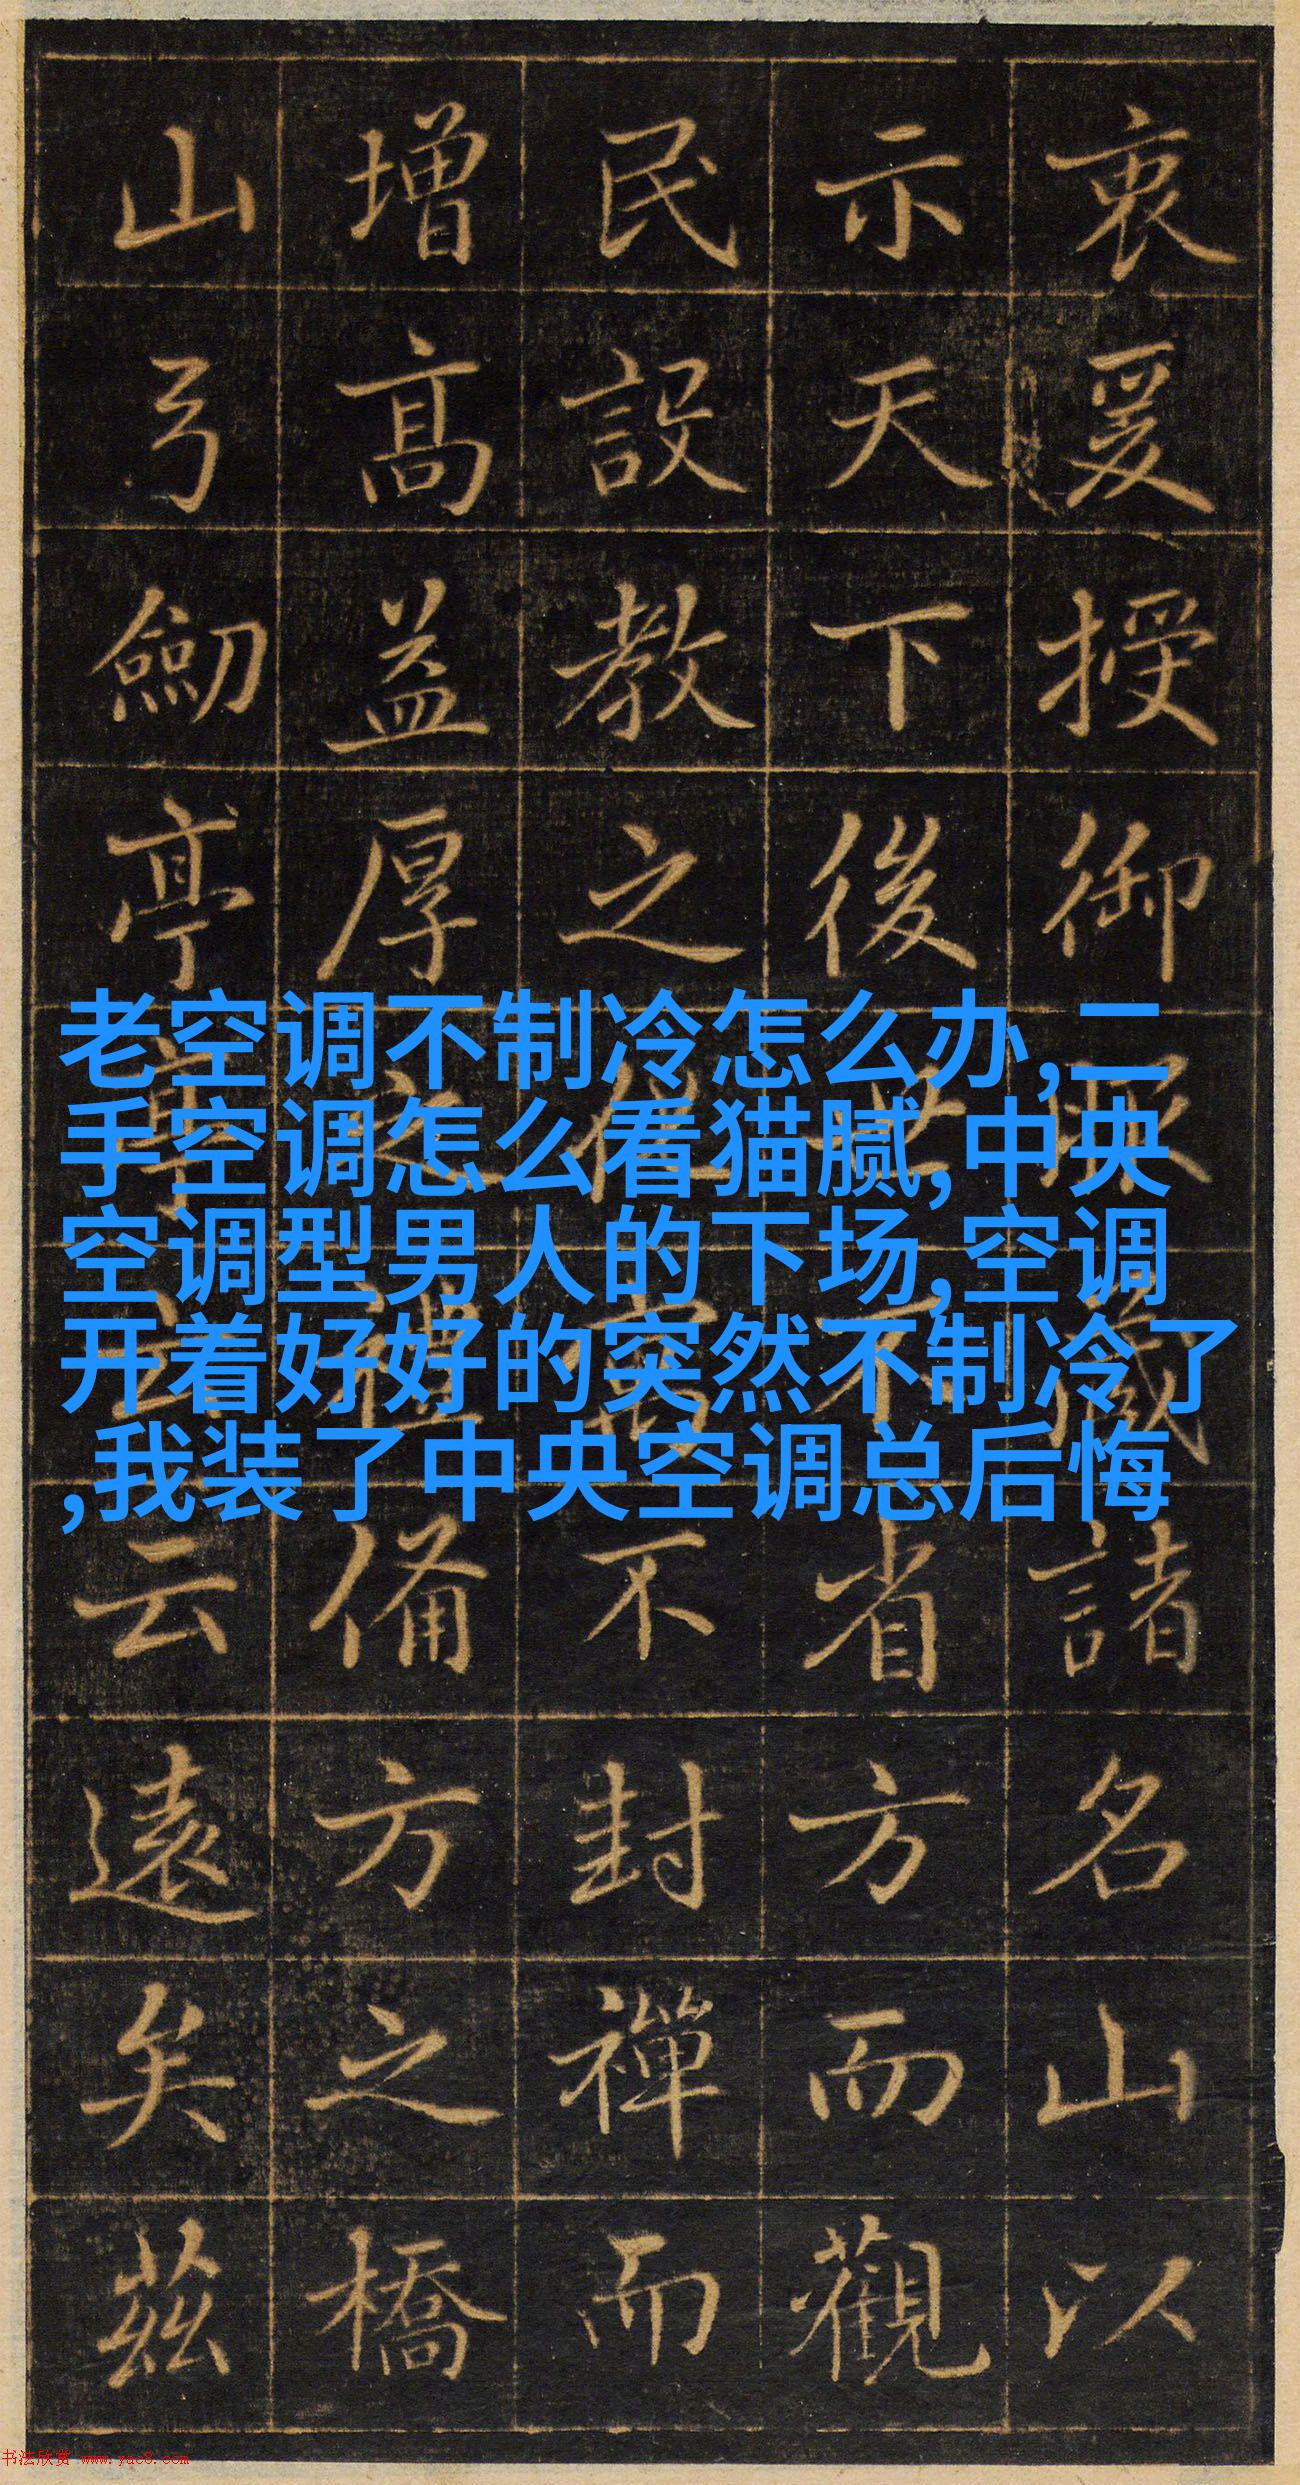 衷爰授御諸名山以
示天下後世不省方而觀
民設教之不封禪而
增高益厚之禮備方之橋
山弓劒亭云遠矣茲
老空调不制冷怎么办,二
手空调怎么看猫腻,中央
空调型男人的下场,空调
开着好好的突然不制冷了
,我装了中央空调总后悔
书法欣赏 www.yac8.com